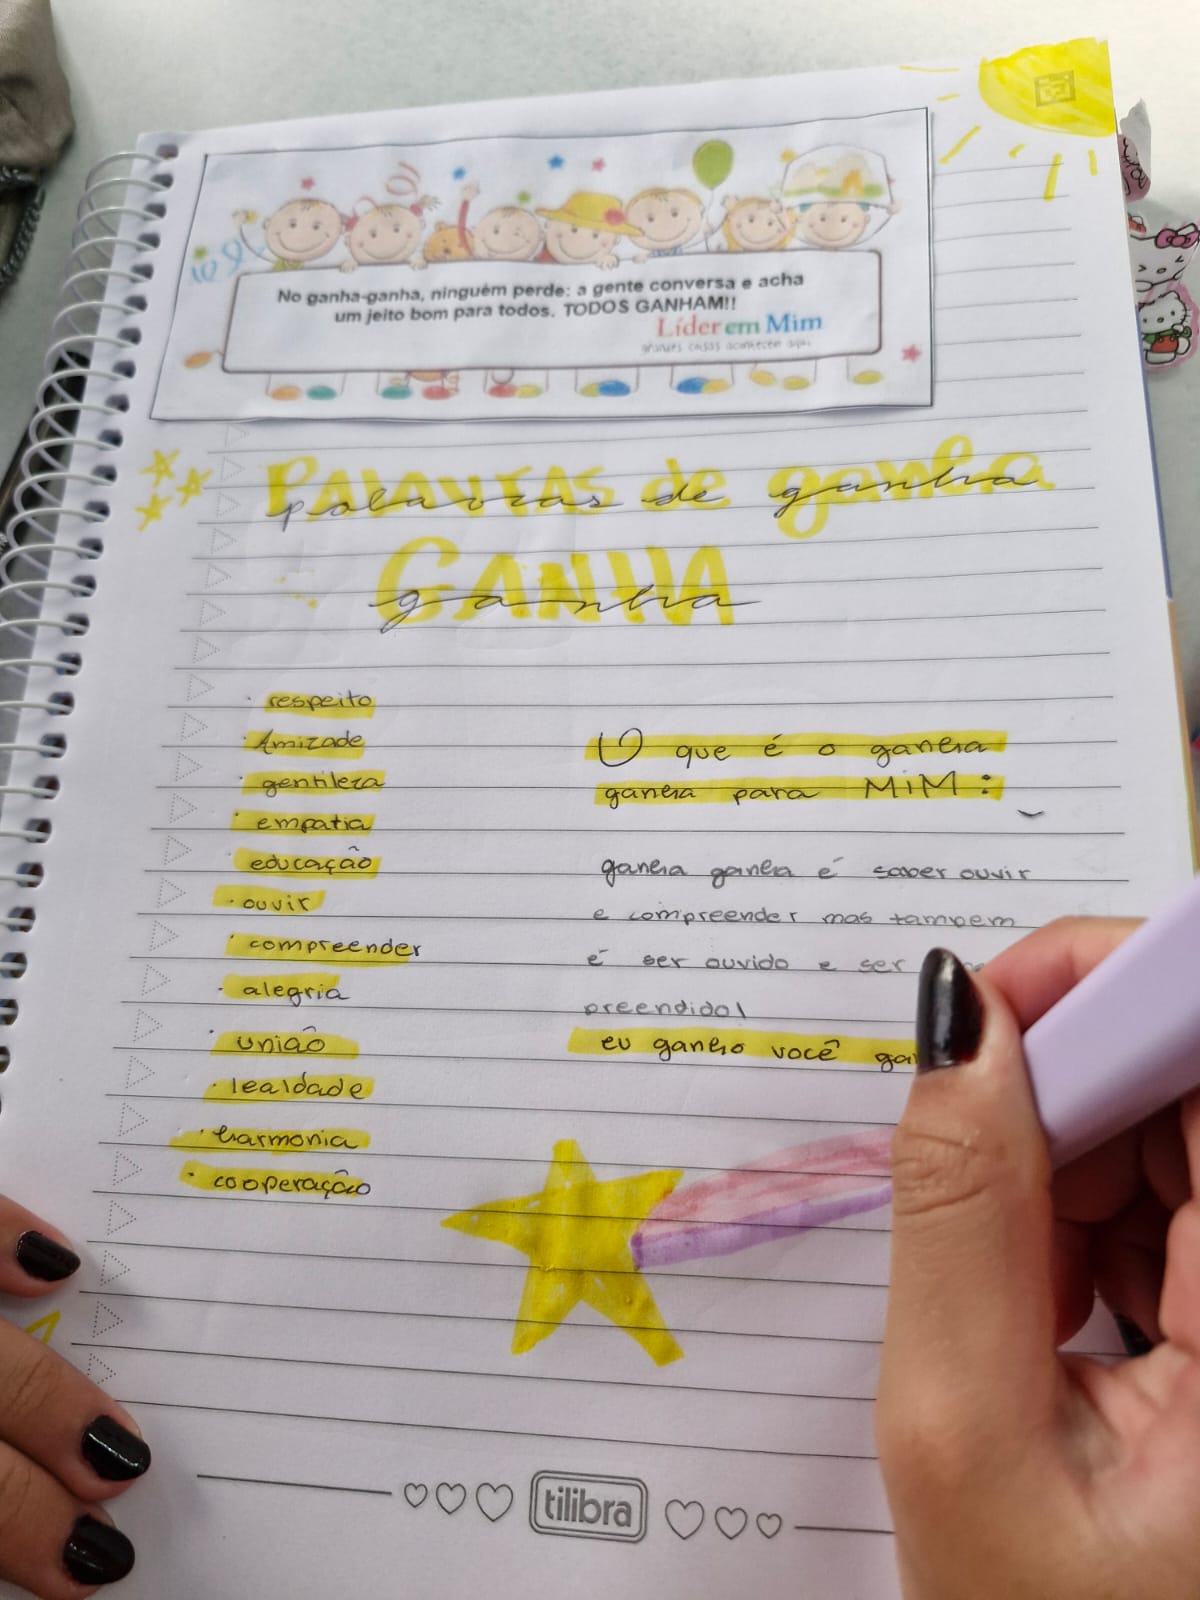 No ganha-ganha, ninguém perde: a gente conversa e acha
um jeito bom para todos. TODOS GANHAM!!
Líder em Mim
grandes coisas acontecem aqui
PALAVRAS de ganha
palavras de ganha
GANHA
ganha
· respeito
· Amizade
· gentileza
· empatia
· educação
· ouvir
· compreender
· alegria
· união
· lealdade
· harmonia
· cooperação
O que é o ganha
ganha para MiM:
ganha ganha é saber ouvir
e compreender mas tambem
é ser ouvido e ser
preendido!
eu ganho você
tilibra